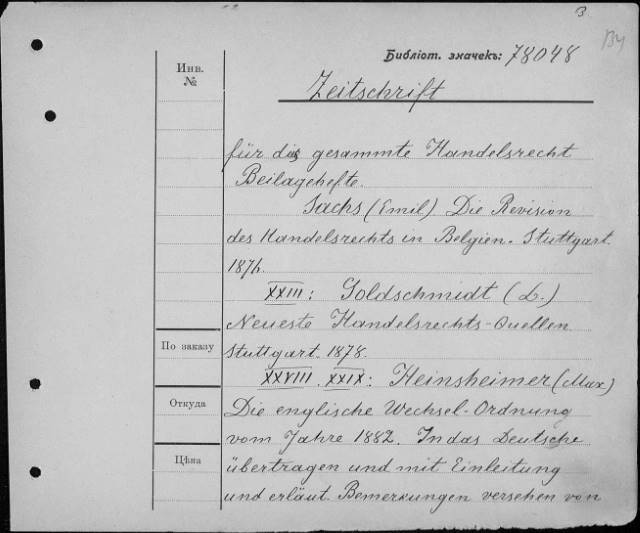 В
134
Библіот. значекъ: 78048
Инв.
№
Zeitschrift
für das gesammte Handelsrecht
Beilagehefte.
Sachs (Emil) Die Revision
des Handelsrechts in Belgien. Stuttgart.
1876.
XXIII: Goldschmidt (L.)
Neueste Handelsrechts-Quellen
Stuttgart. 1878.
XXVIII. XXIX: Heinsheimer (Max)
Die englische Wechsel-Ordnung
vom Jahre 1882. In das Deutsche
übertragen und mit Einleitung
und erläut. Bemerkungen versehen von
По заказу
Откуда
Цѣна